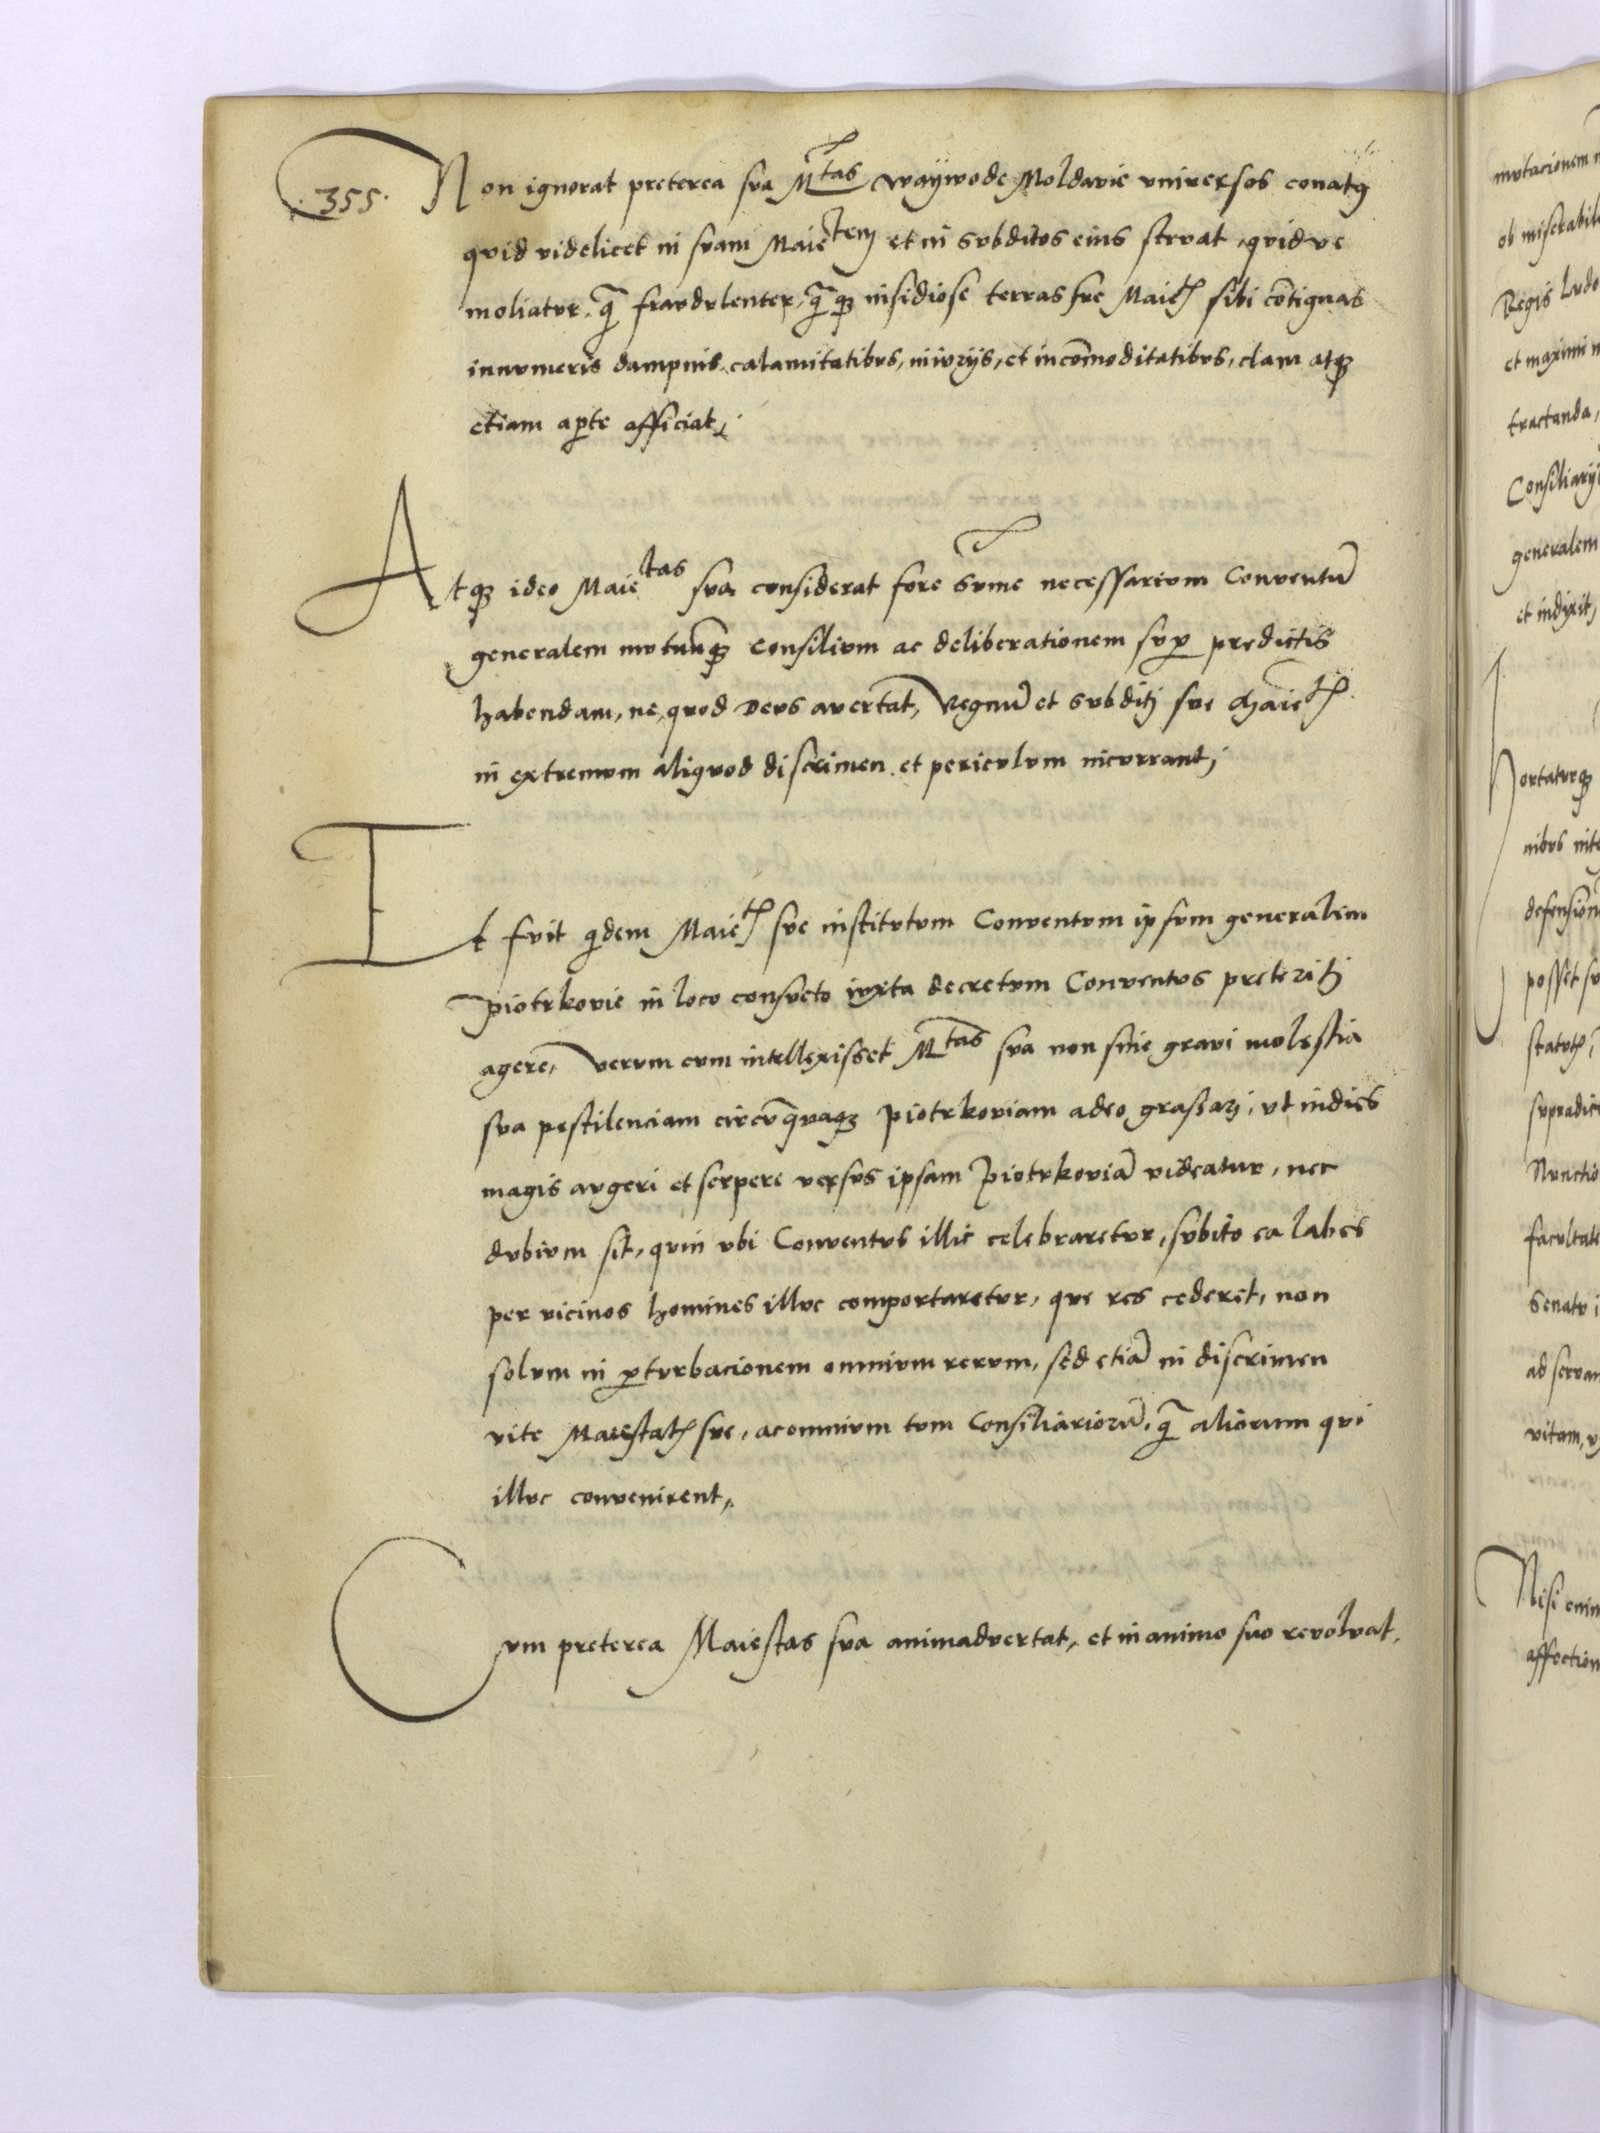 .355.
Non ignorat preterea sua Mtas waywode Moldavie universos conatus
quid videlicet in suam Maietem et in subditos eius struat, quid ve
moliatur, qua fraudulenter, quaque insidiose terras sue Maietis sibi cōtiguas
innumeris dampnis calamitatibus, iniuriis, et incōmoditatibus, clam atque
etiam aperte afficiat,
Atque ideo Maietas sua considerat fore sume necessarium Conventū
generalem mutuumque consilium ac deliberationem super predictis
habendam, ne, quod Deus avertat, Regnū et subditi sue Maietis
in extremum aliquod discrimen et periculum incurrant,
Et fuit quidem Maietis sue institutum Conventum ipsum generalem
Piotrkovie in loco consueto iuxta decretum Conventus preteriti
agere, Verum cum intellexisset Mtas sua non sine gravi molestia
sua pestilenciam circūquaque Piotrkoviam adeo grassari, ut indies
magis augeri et serpere versus ipsam Piotrkoviā videatur, nec
dubium sit, quin ubi Conventus illic celebraretur, subito ea labes
per vicinos homines illuc comportaretur, que res cederet, non
solum in perturbacionem omnium rerum, sed etiā in discrimen
vite Maiestatis sue, ac omnium tum Consiliariorū, quā aliorum qui
illuc convenirent,
Cum preterea Maiestas sua animadvertat, et in animo suo revolvat,
mutacionem
Regis Ludo
et maximi
tractanda,
Consiliarii
generalem
et indixit,
hortaturque
nibus
defension
posset
supradict
Nuncio
facultate
Senatu
ad servan
vitam,
Nisi enim
affection